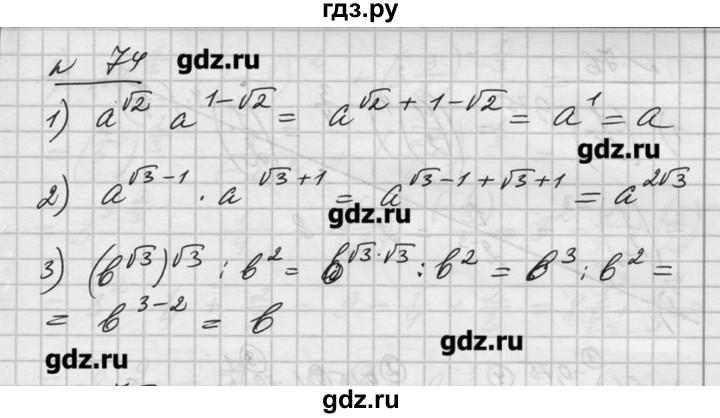 гдз.ру
№ 74 gdz.ru
1) a^√2 a^(1-√2) = a^(√2+1-√2) = a^1 = a
gdz.ru
2) a^(√3-1) · a^(√3+1) = a^(√3-1+√3+1) = a^(2√3)
gdz.ru
3) (b^√3)^√3 : b^2 = b^(√3·√3) : b^2 = b^3 : b^2 =
= b^(3-2) = b
gdz.ru gdz.ru
gdz.ru